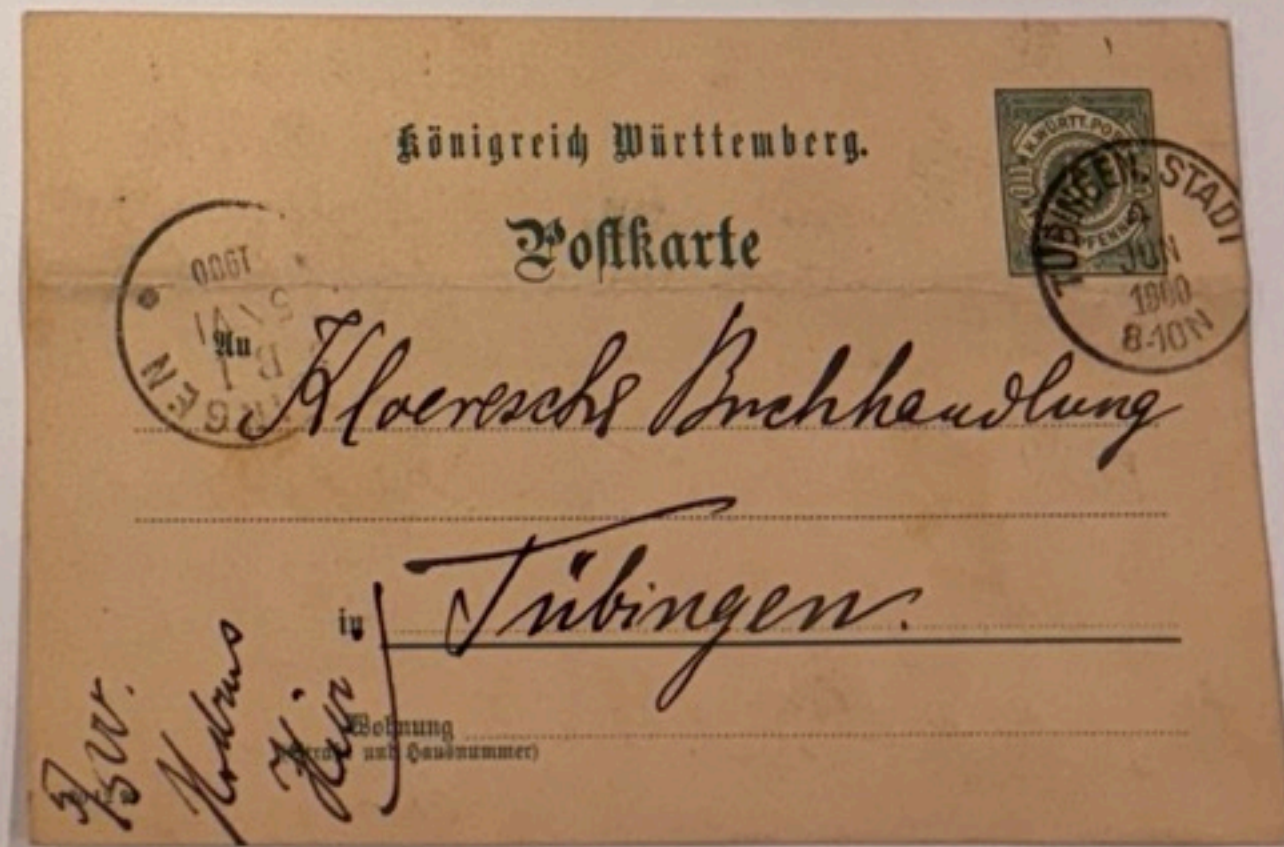 Königreich Württemberg.
Postkarte
K. WÜRTT. POST
PFENNIG
TÜBINGEN. STADT
4
JUN
1900
8-10N
1900
5 VI
B 1
An Kloeresche Buchhandlung
in Tübingen.
Wohnung
(Straße und Hausnummer)